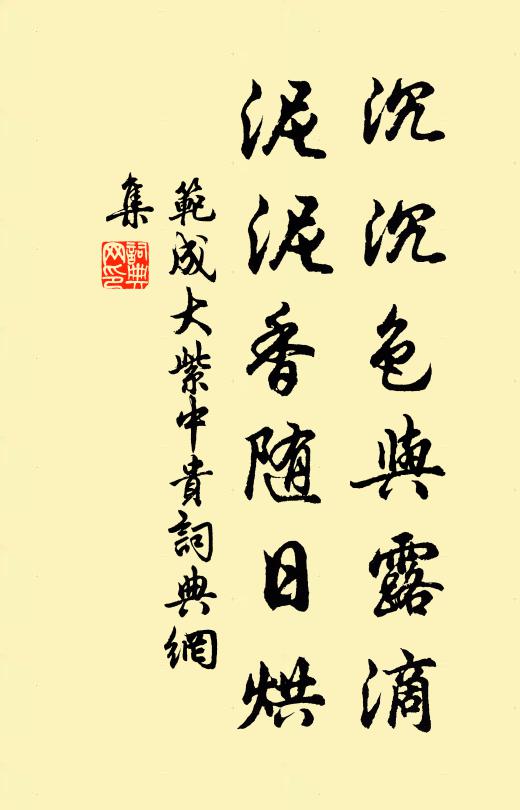 沉沉色與露滴
泥泥香随日烘
範成大紫中貴詞典網
集
詞典網印